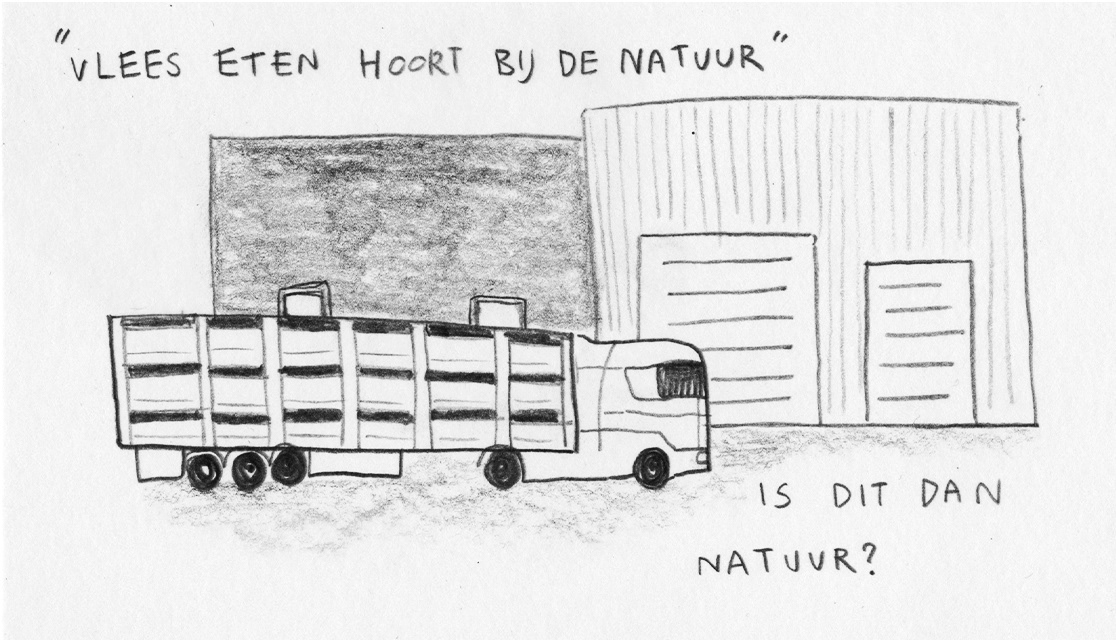 "VLEES ETEN HOORT BIJ DE NATUUR"
IS DIT DAN
NATUUR?